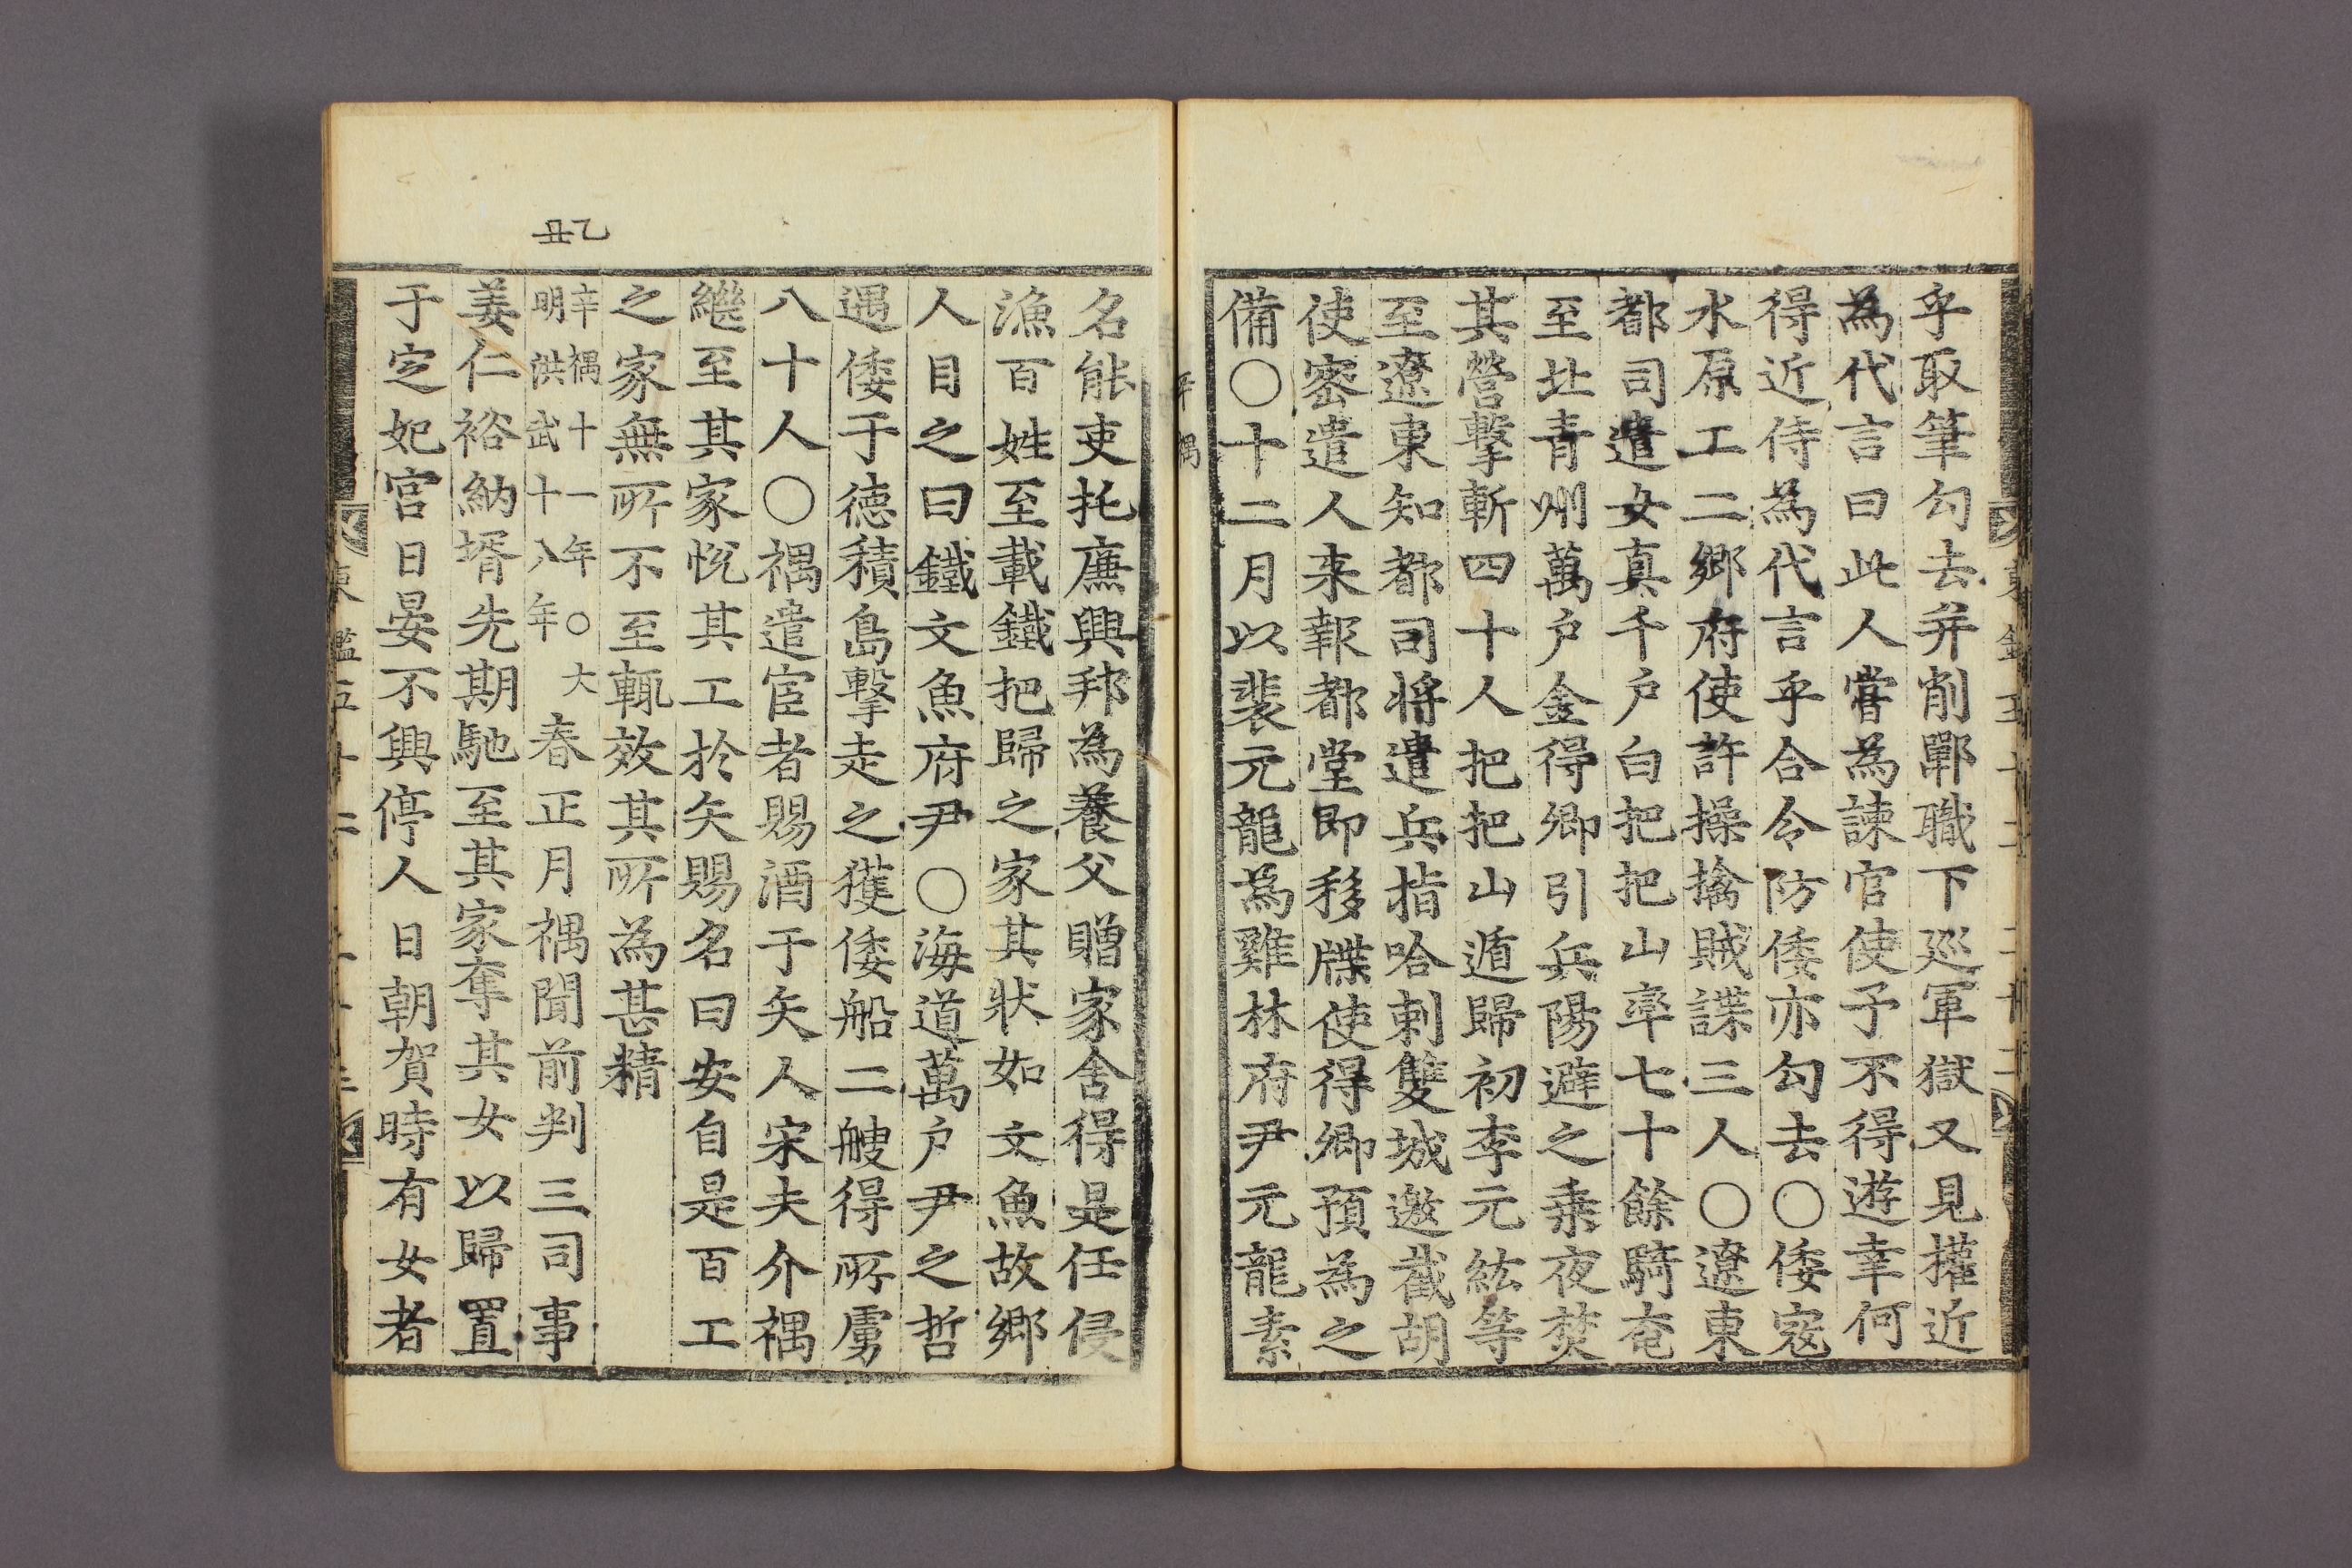 乎取筆勾去并削鄲職下巡軍獄又見擢近
為代言曰此人嘗為諫官使予不得遊幸何
得近侍為代言乎合令防倭亦勾去○倭寇
水原工二鄉府使許操擒賊諜三人○遼東
都司遣女真千户白把把山率七十餘騎奄
至北青州萬户金得卿引兵陽避之乗夜焚
其營擊斬四十人把把山遁歸初李元紘等
至遼東知都司将遣兵指哈剌雙城邀截胡
使密遣人来報都堂即移牒使得卿預為之
備○十二月以裴元龍為雞林府尹元龍素
辛禑
名能吏托廉興邦為養父贈家舍得是任侵
漁百姓至載鐵把歸之家其狀如文魚故鄉
人目之曰鐵文魚府尹○海道萬户尹之哲
遇倭于德積島擊走之獲倭船二艘得所虜
八十人○禑遣宦者賜酒于矢人宋夫介禑
繼至其家悅其工於矢賜名曰安自是百工
之家無所不至輒效其所為甚精
乙丑
辛禑十一年○大
明洪武十八年
春正月禑聞前判三司事
姜仁裕納壻先期馳至其家奪其女以歸置
于定妃宮日晏不興停人日朝賀時有女者
東鑑五十二